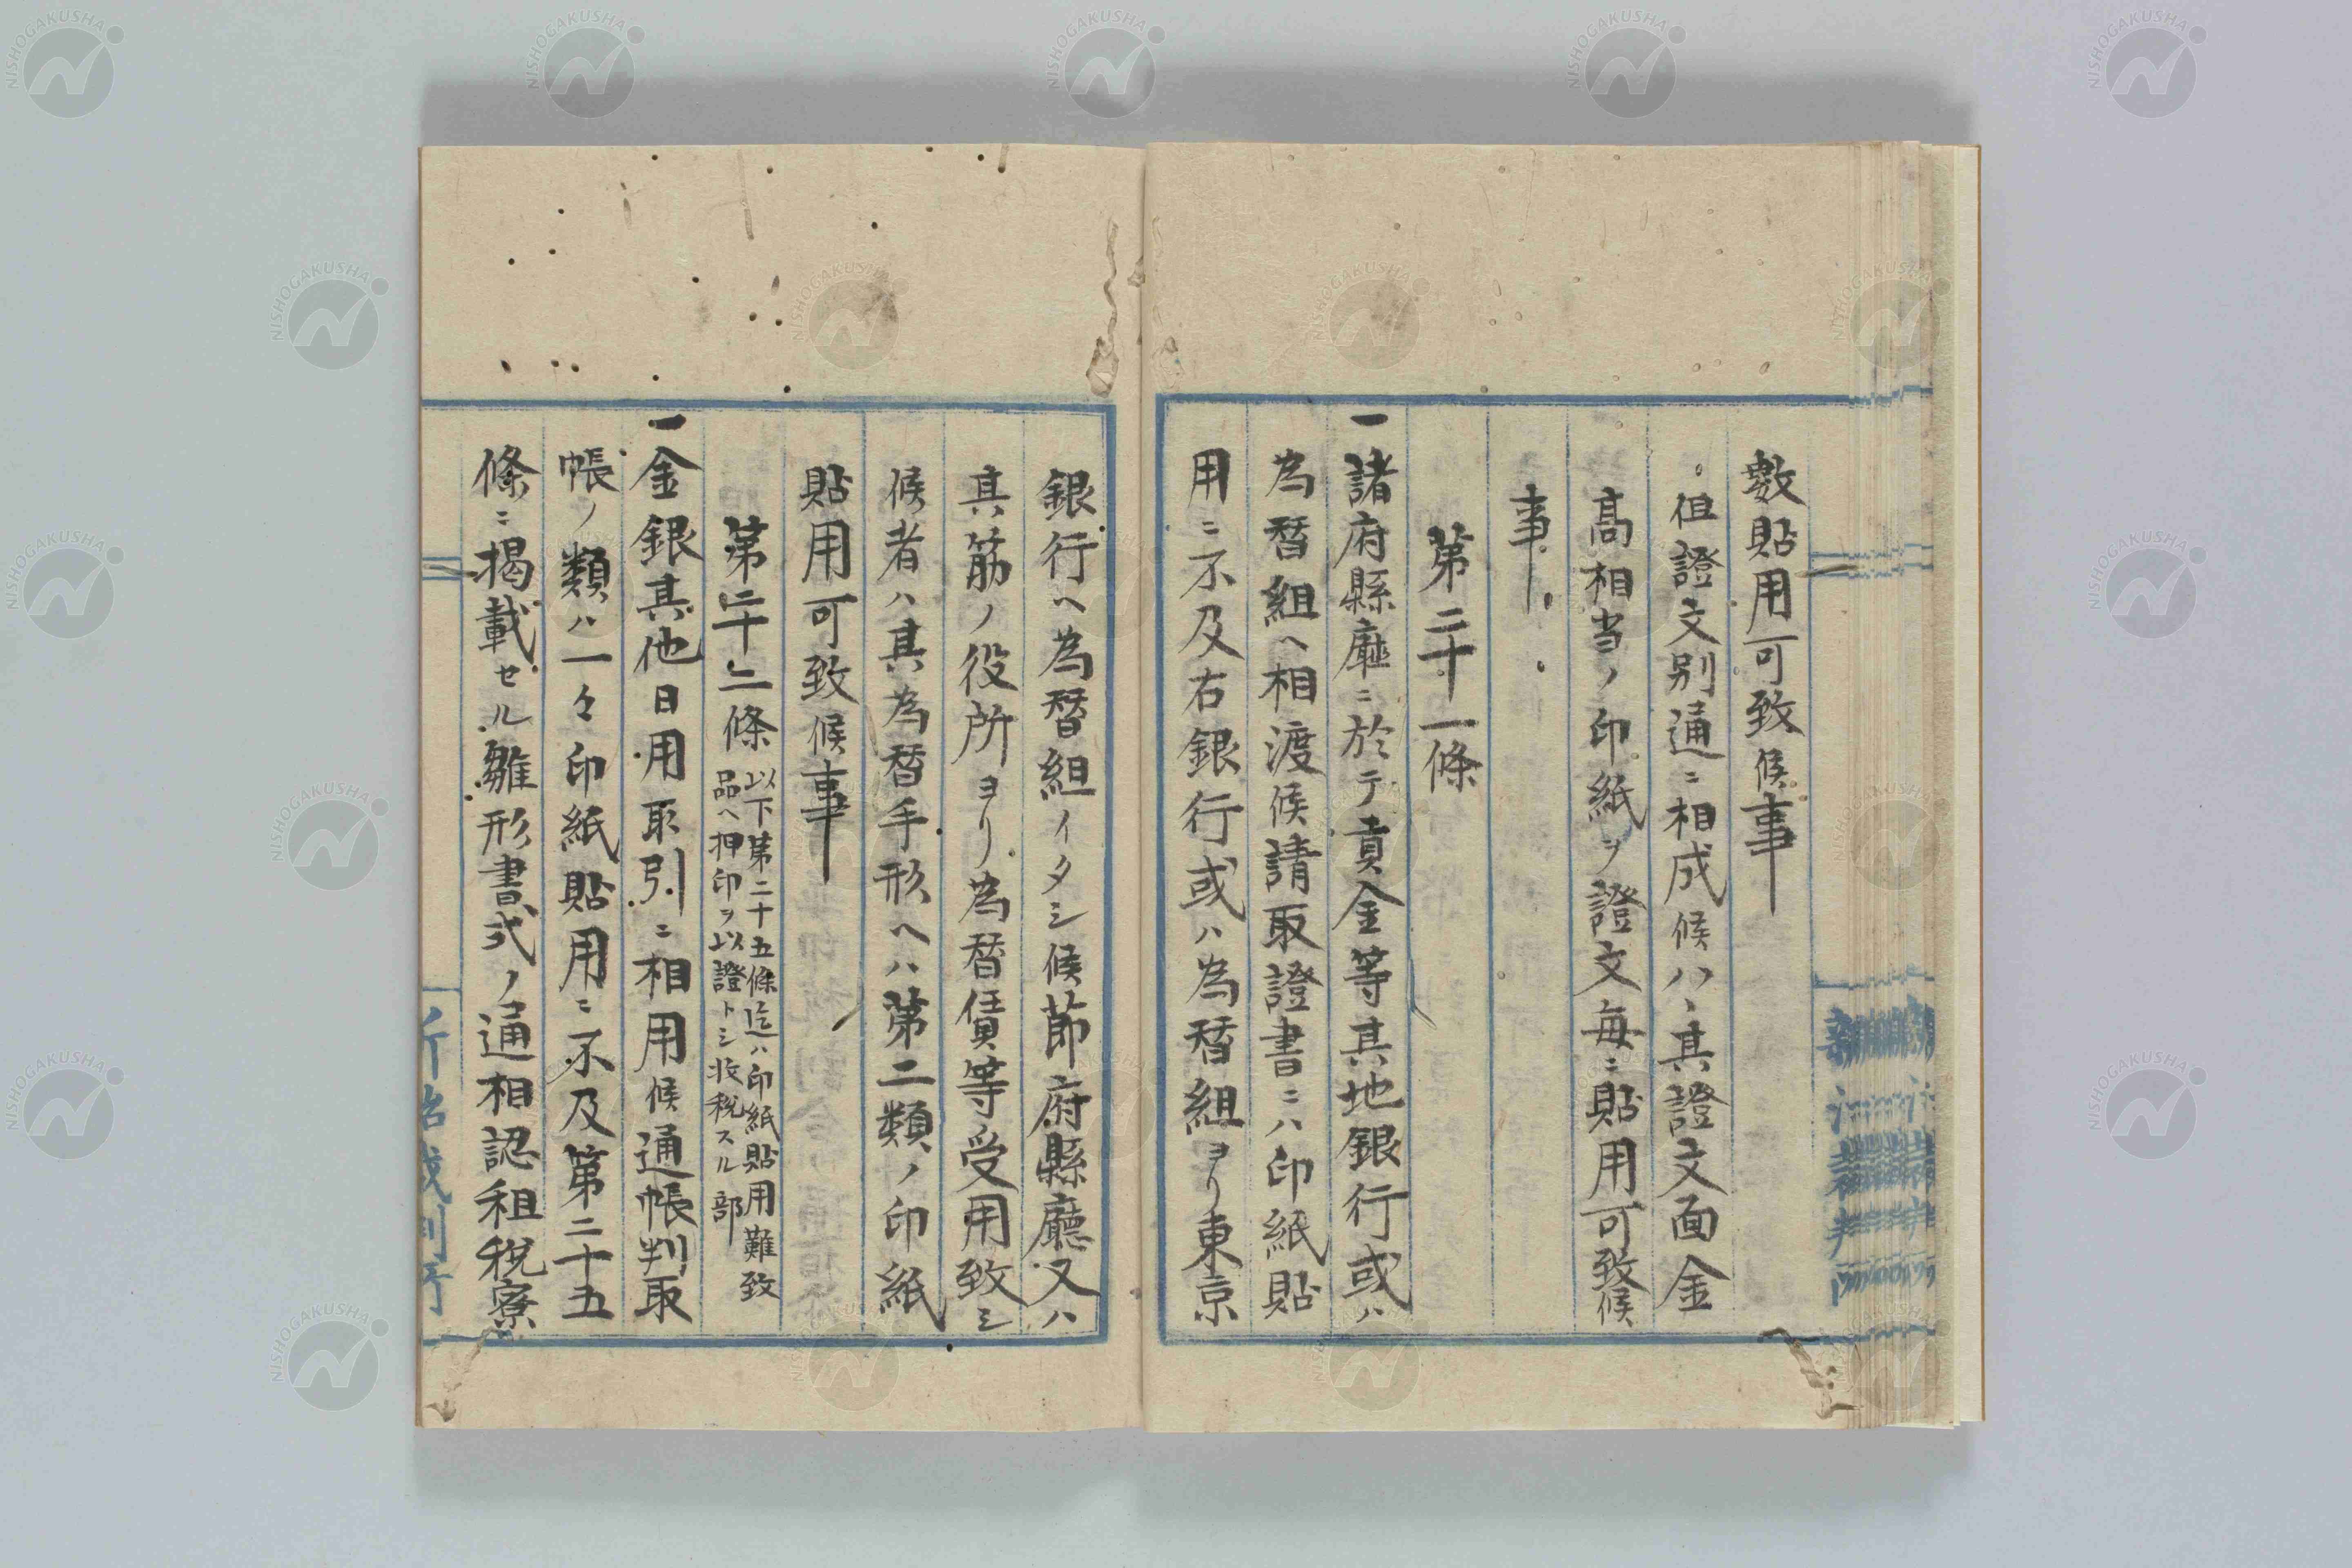 數貼用可致候事
但證文別通ニ相成候ハヽ其證文面金
高相当ノ印紙ヲ證文毎ニ貼用可致候
事
第二十一條
一諸府縣廰ニ於テ貢金等其地銀行或ハ
為替組ヘ相渡候請取證書ニハ印紙貼
用ニ不及右銀行或ハ為替組ヨリ東京
銀行ヘ為替組イタシ候節府縣廳又ハ
其筋ノ役所ヨリ為替賃等受用致シ
候者ハ其為替手形ヘハ第二類ノ印紙
貼用可致候事
第二十二條 以下第二十五條迄ハ印紙貼用難致
品ヘ押印ヲ以證トシ收税スル部
一金銀其他日用取引ニ相用候通帳判取
帳ノ類ハ一々印紙貼用ニ不及第二十五
條ニ掲載セル雛形書式ノ通相認租税寮
NISHOGAKUSHA